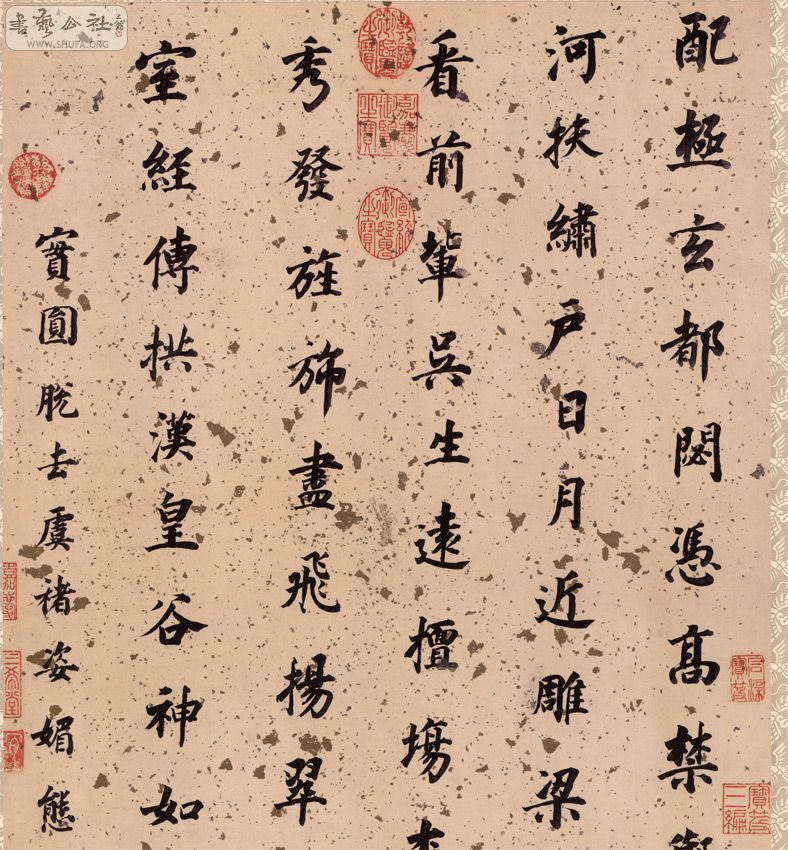 配極玄都閟憑髙禁
河扶繡戶日月近雕梁
看前輩吳生遠擅場
秀發旌旆盡飛揚翠
室經傳拱漢皇谷神如
實圓脫去虞褚姿媚態
宣統御覽之寶
石渠寶笈
寶笈三編
書藝公社
WWW.SHUFA.ORG